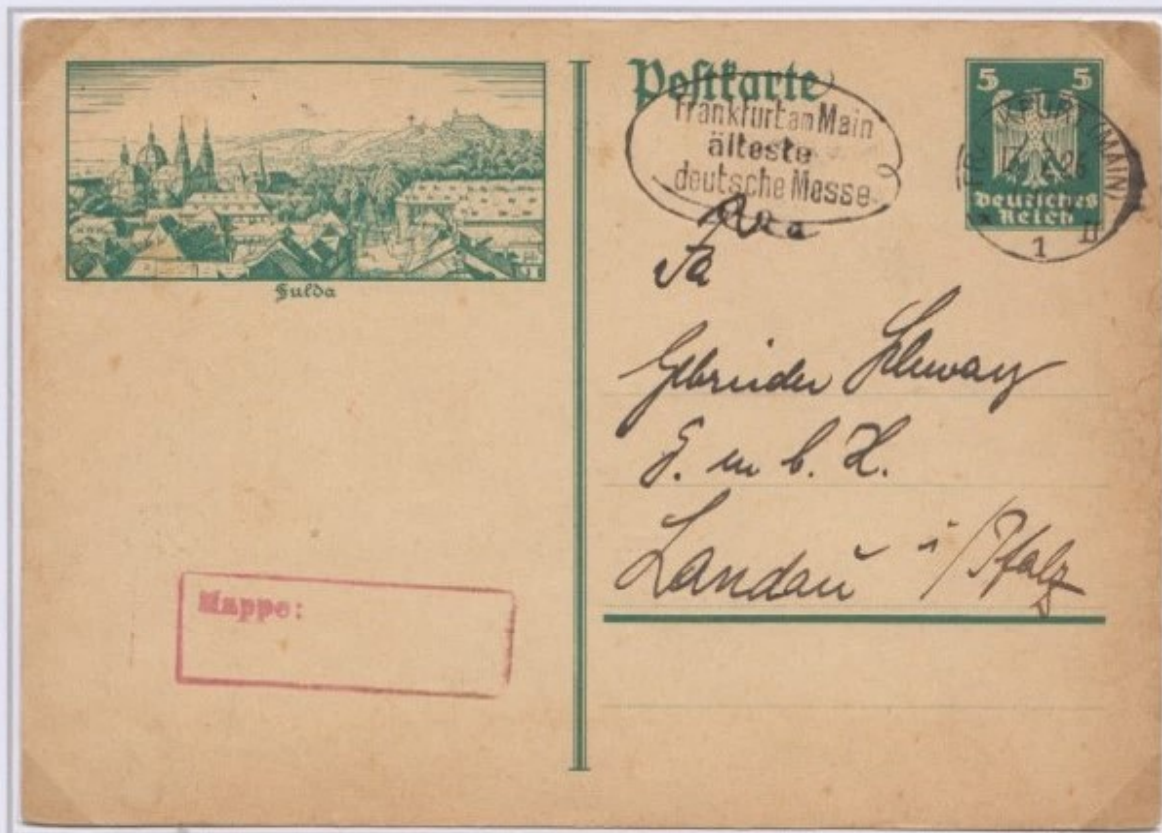 Postkarte
Frankfurt am Main
älteste
deutsche Messe
5 5
Deutsches
Reich
(MAIN)
1 II
Fulda
Fa
Gebrüder
G. m b. H.
Landau i/Pfalz
Mappe: